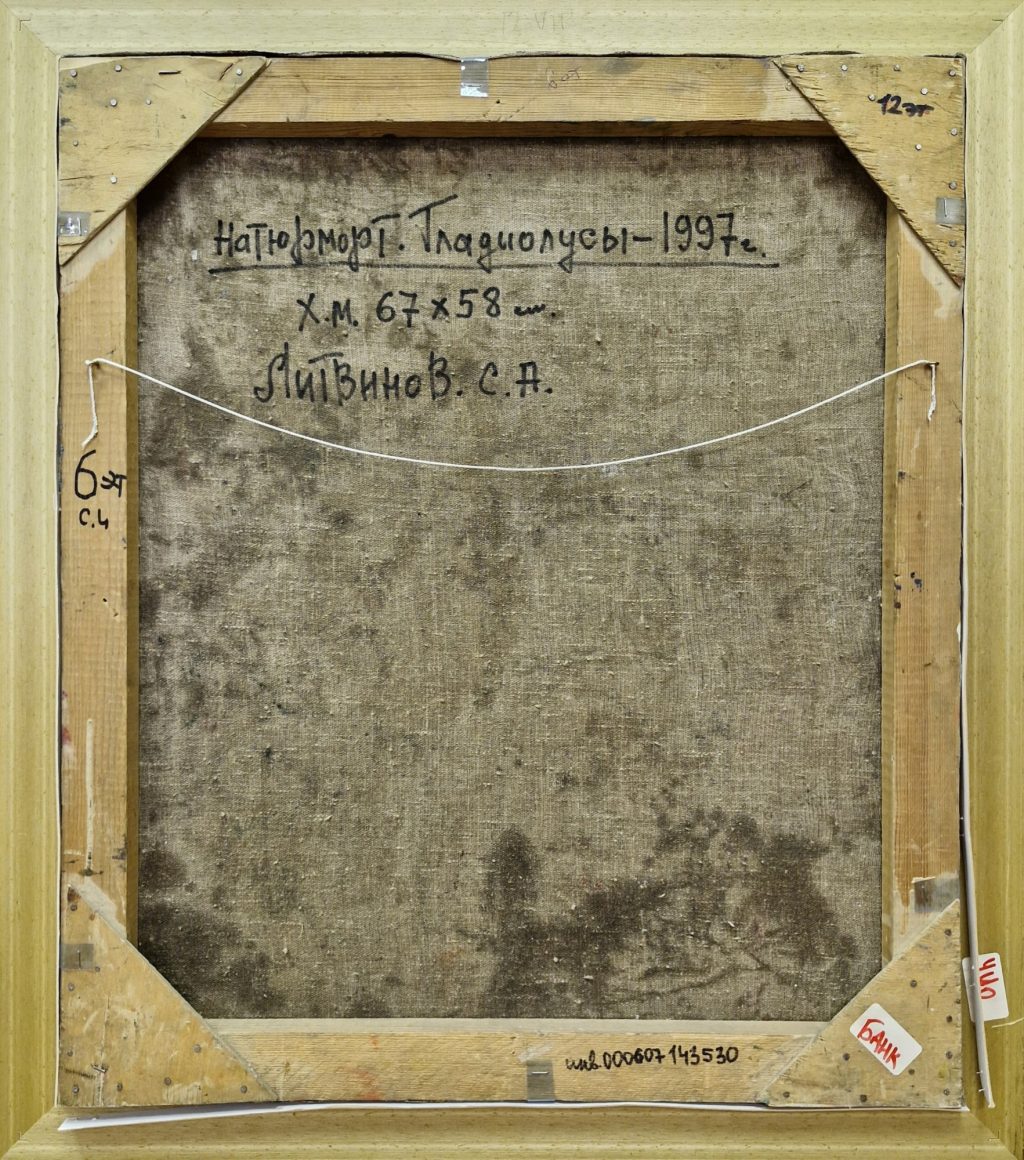 12эт
Натюрморт. Гладиолусы-1997г.
Х.М. 67х58 см.
Литвинов. С.А.
6эт
с.4
инв.000607143530
БАНК